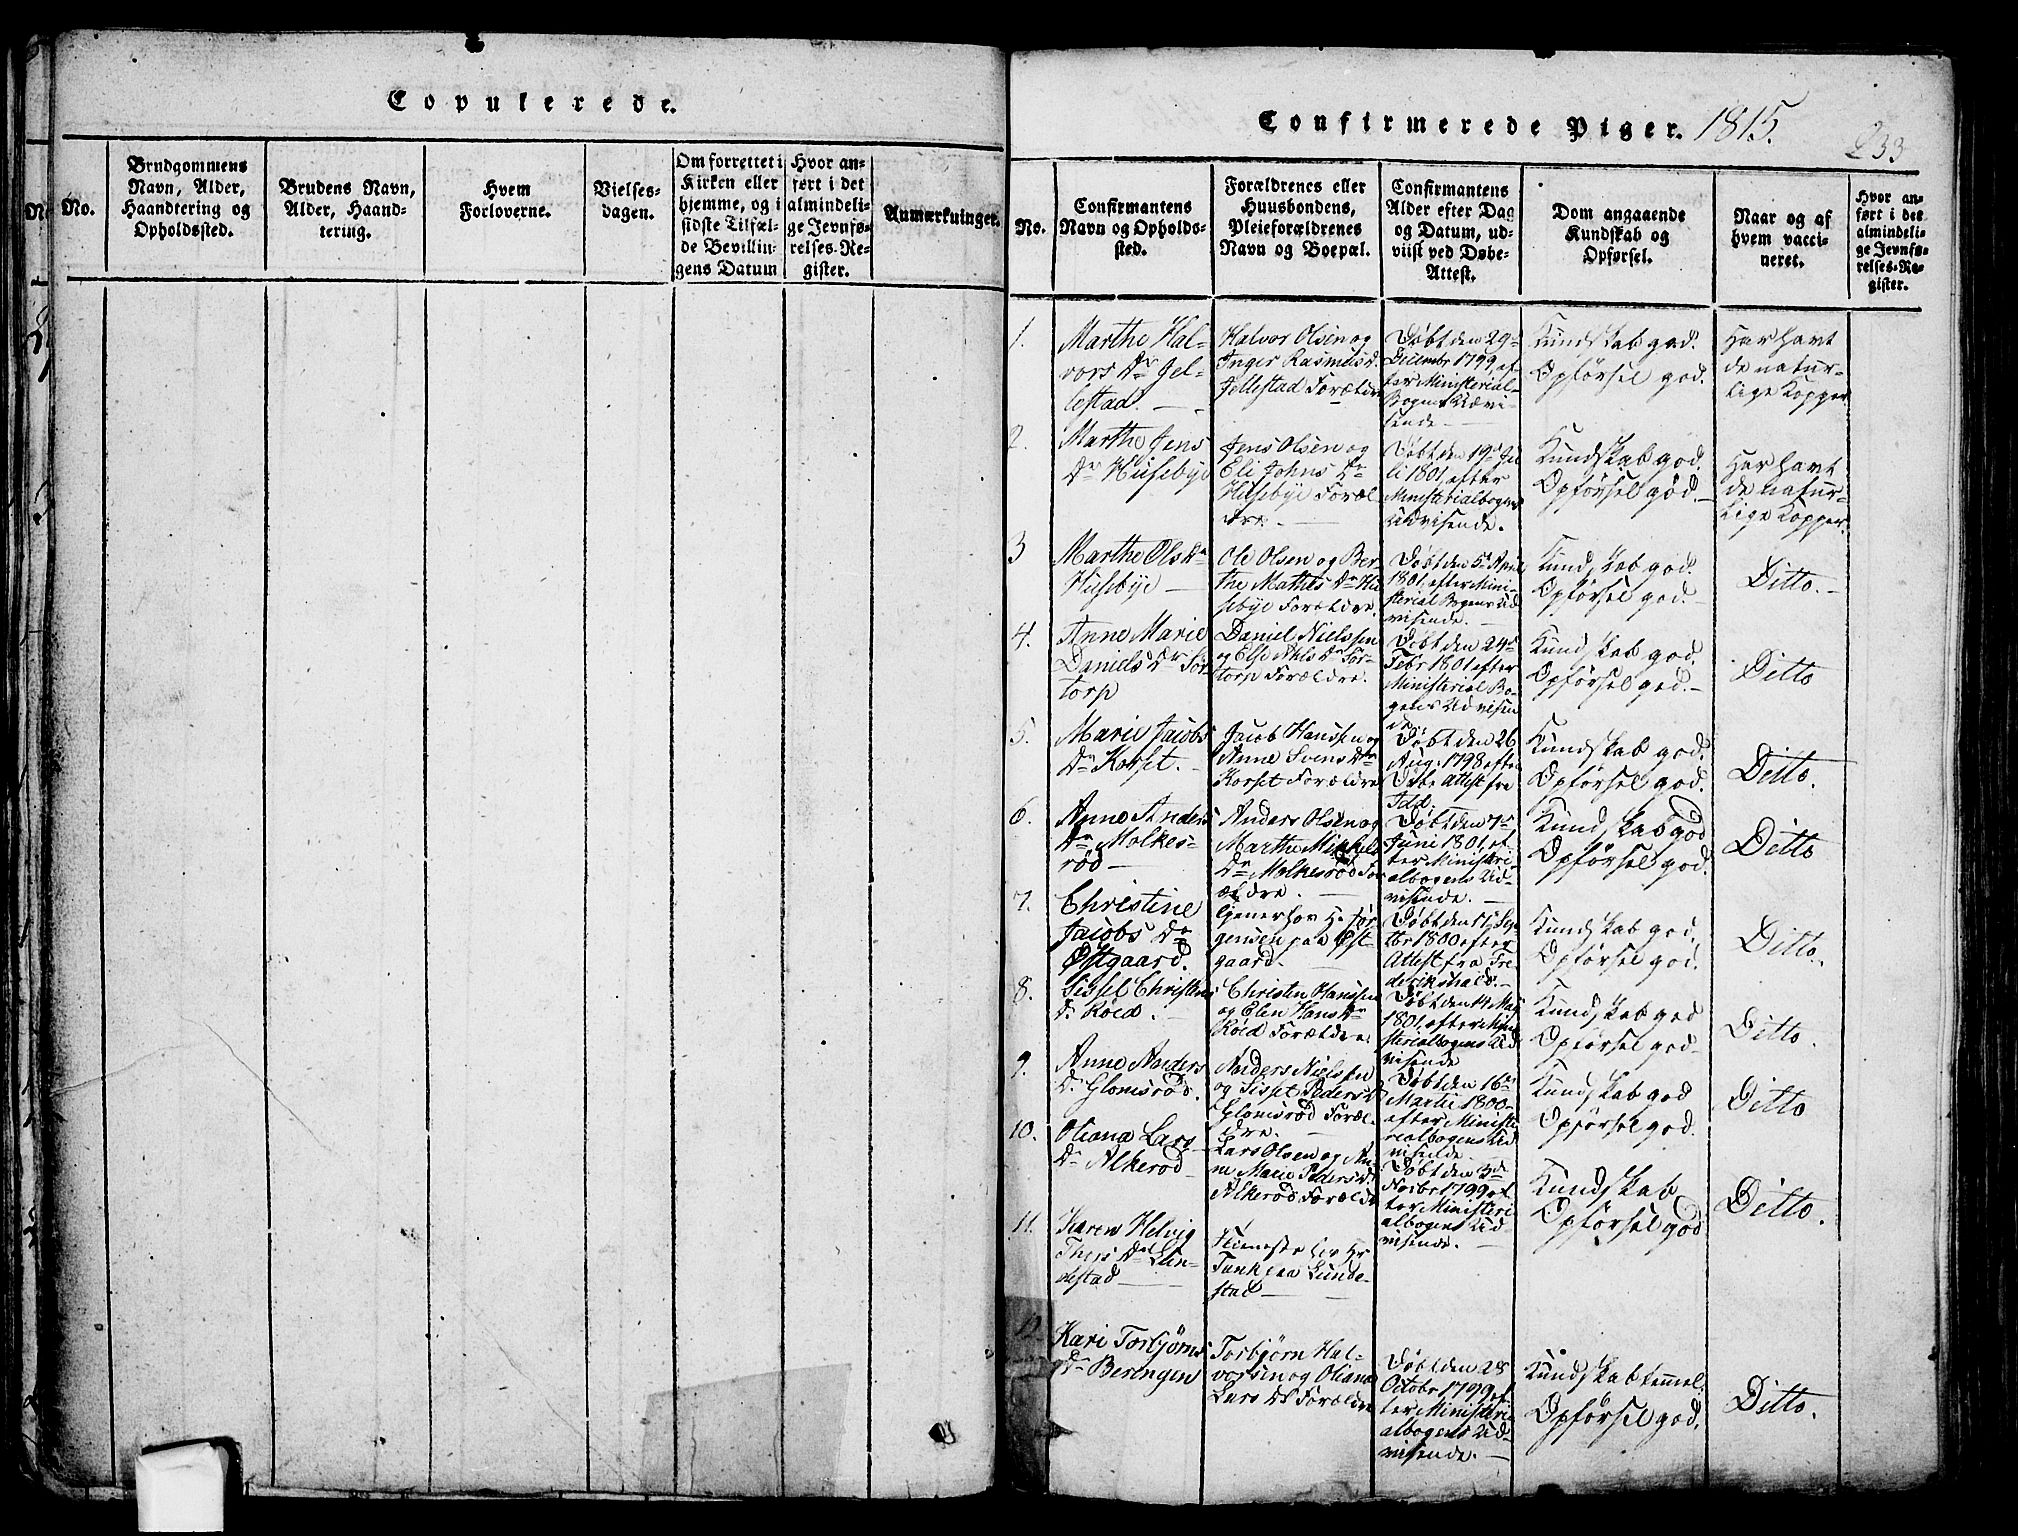 Copulerede.
No.
Brudgommens
Navn, Alder,
Haandtering og
Opholdssted.
Brudens Navn,
Alder, Haand-
tering.
Hvem
Forloverne.
Vielses-
dagen.
Om forrettet i
Kirken eller
hjemme, og i
sidste Tilfæl-
de Bevillin-
gens Datum
Hvor an-
ført i det
almindeli-
ge Jevnfø-
relses-Re-
gister.
Anmærkninger.
Confirmerede Piger. 1815.
233
No.
Confirmantens
Navn og Opholds-
sted.
Forældrenes eller
Huusbondens,
Pleieforældrenes
Navn og Boepæl.
Confirmantens
Alder efter Dag
og Datum, ud-
viist ved Døbe-
Attest.
Dom angaaende
Kundskab og
Opførsel.
Naar og af
hvem vacci-
neret.
Hvor an-
ført i det
almindeli-
ge Jevnfø-
relses-Re-
gister.
1.
Marthe Hal-
vors Dr Jel-
lestad.
Halvor Olsen og
Inger Rasmus D.
Jellestad Forældre
Døbt den 29de
Decembr 1799, ef-
ter Ministerial-
Bogens Udvi-
sende
Kundskab god.
Opførsel god.
Har havt
de natur-
lige Kopper
2.
Marthe Jens
Dr Huseby
Jens Olsen og
Eli Johns Dr
Husebye Foræl-
dre.
Døbt den 19de Ju-
li 1801, efter
Ministerialbogens
Udvisende.
Kundskab god.
Opførsel god.
Har havt
de natur-
lige Kopper.
3
Marthe Ols Dr
Husebye
Ole Olsen og Ber-
the Mathis Dr Hu-
sebye Forældre.
Døbt den 5te April
1801, efter Mini-
sterial Bogens Ud
visende.
Kundskab god.
Opførsel god.
Ditto.
4.
Anne Marie
Daniels Dr Tor-
torp
Daniel Nielssen
og Else Nils Dr Tor-
torp Forældre.
Døbt den 24de
Febr 1801 efter
Ministerial Bo-
gens Udvisen
de.
Kundskab god.
Opførsel god.
Ditto
5.
Marie Jacobs
Dr Korset.
Jacob Hanssen og
Anne Svens Dr
Korset Forældre
Døbt den 26
Aug: 1798, efter
Døbe Attest fra
Idd.
Kundskab god.
Opførsel god.
Ditto.
6.
Anne Anders
Dr Molkes-
rød
Anders Olsen og
Marthe Mikkels
Dr Molkesrød For
ældre.
Døbt den 7de
Juni 1801, ef-
ter Ministeri-
albogens Ud-
visende.
Kundskab god
Opførsel god.
Ditto
7.
Christine
Jacobs Dr
Østgaard.
tjener hos Hr Jør-
gensen paa Øst-
gaard.
Døbt den 17de Sep
tbr 1800 efter
Attest fra Fre-
derikshald.
Kundskab god.
Opførsel god.
Ditto.
8.
Sissel Christens
Dr Røed.
Christen Hanssen
og Elen Hans Dr
Røed Forældre.
Døbt den 14 Maj
1801, efter Mini-
sterialbogens Ud
visende
Kundskab god
Opførsel god
Ditto.
9.
Anne Anders
Dr Glomsrød.
Anders Nielssen
og Sissel Peders D
Glomsrød Foræl-
dre.
Døbt den 16de
Martii 1800
efter Ministe
rialbogens Ud
visende
Kundskab god
Opførsel god.
Ditto
10.
Oliana Lars
Dr Alkerød
Lars Olsen og An-
ne Marie Peders D.
Alkerød Forældre
Døbt den 3de
Novbr 1799 ef
ter Ministeri
albogens Ud
visende.
Kundskab
Opførsel god
Ditto.
11.
Karen Helvig
Thers Dr Lun-
destad
Tieneste hos Hr
Tank paa Lunde-
stad
12.
Kari Torbjørns
Dr Berengen
Torbjørn Hal-
vorsen og Oliana
Lars Dr Forældre
Døbt den 28
Octobr 1799 ef
ter Ministeri
albogens Ud-
visende.
Kundskab temmel.
Opførsel god.
Ditto.